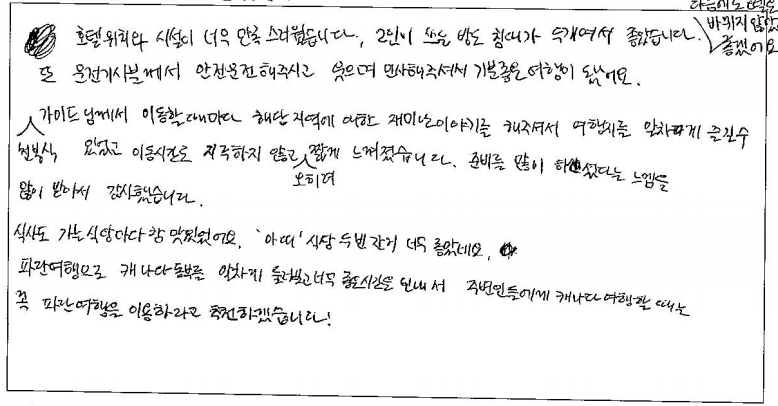 호텔 위치와 시설이 너무 만족스러웠습니다, 2인이 쓰는 방도 침대가 두개여서 좋았습니다.
다음에도
바뀌지 않았으면 좋겠어요
또 운전기사분께서 안전운전해주시고 웃으며 인사해주셔서 기분좋은 여행이 됐어요.
가이드님께서 이동할때마다 해당 지역에 대한 재미난이야기를 해주셔서 여행지를 알차게 즐길수
있었고 이동시간도 지루하지 않고 오히려 짧게 느껴졌습니다. 준비를 많이 하셨다는 느낌을
많이 받아서 감사했습니다.
식사도 가는식당마다 참 맛있었어요, '아띠' 식당 두번간거 너무 좋았네요,
파란여행으로 캐나다동부를 알차게 둘러보고 너무 좋은시간을 보내서 주변인들에게 캐나다여행할 때는
꼭 파란여행을 이용하라고 추천하겠습니다!